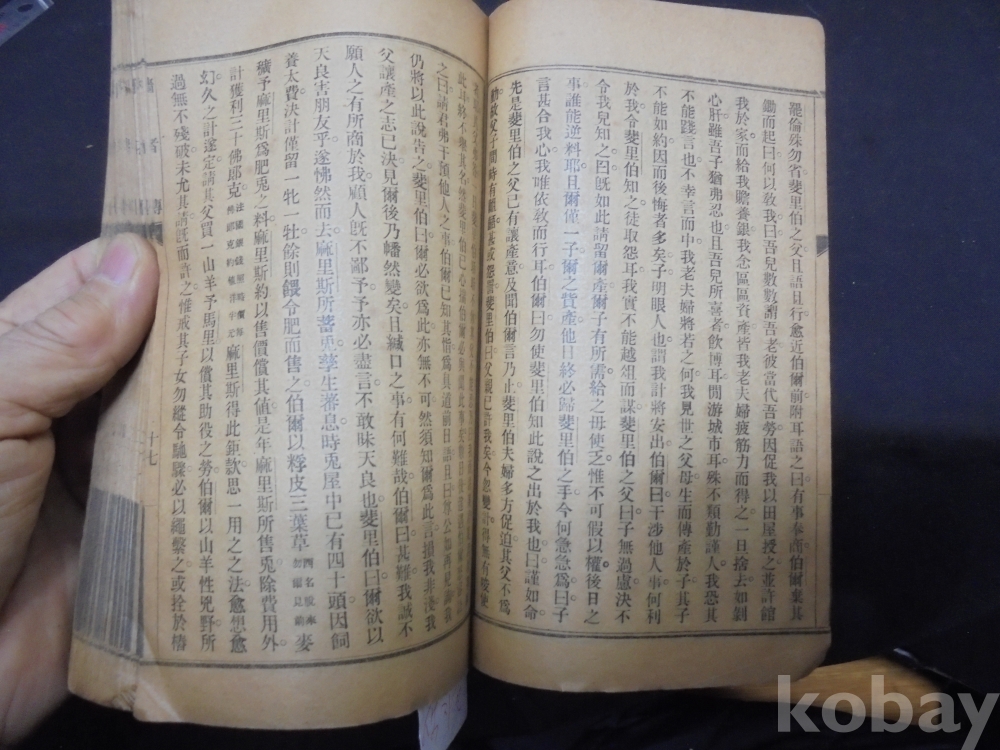 罷倫殊勿省斐里伯之父且語且行愈近伯爾前附耳語之曰有事奉商伯爾棄其
鋤而起曰何以敎我曰吾兒數數謂吾老彼當代吾勞因促我以田屋授之並許館
我於家而給我贍養銀我念區區資產皆我老夫婦疲筋力而得之一旦捨去如剜
心肝雖吾子猶弗忍也且吾兒所喜者飮博耳閒游城市耳殊不類勤謹人我恐其
不能踐言也不幸言而中我老夫婦將若之何我見世之父母生而傳產於子其子
不能如約因而後悔者多矣子明眼人也謂我計將安出伯爾曰干涉他人事何利
於我令斐里伯之徒取怨耳我實不能越俎而謀斐里伯之父曰子無過慮決不
令我兒知之曰旣如此請留爾產爾子有所需給之毋使乏惟不可假以權後日之
事誰能逆料耶且爾僅一子爾之貲產他日終必歸斐里伯之手今何急急爲曰子
言甚合我心我唯依敎而行耳伯爾曰勿使斐里伯知此說之出於我也曰謹如命
先是斐里伯之父已有讓產意及聞伯爾言乃止斐里伯夫婦多方促迫其父不爲
動故父子間時有齟齬甚或怨詈斐里伯曰父親已許我矣今忽變計得無有唆使
之曰請君弗干預他人之事伯爾已知其指
仍將以此說告之斐里伯曰爾必欲爲此亦無不可然須知爾爲此言損我非淺我
父讓產之志已決見爾後乃幡然變矣且緘口之事有何難哉伯爾曰甚難我誠不
願人之有所商於我顧人旣不鄙予予亦必盡言不敢昧天良也斐里伯曰爾欲以
天良害朋友乎遂怫然而去麻里斯所蓄兎孳生蕃息時兎屋中已有四十頭因飼
養太費決計僅留一牝一牡餘則餵令肥而售之伯爾以稃皮三葉草麥
穬予麻里斯爲肥兎之料麻里斯約以售價償其値是年麻里斯所售兎除費用外
計獲利三十佛郎克法國銀錢照時價每佛郎克約値洋半元麻里斯得此鉅款思一用之之法愈想愈
幻久之計遂定請其父買一山羊予馬里以償其助役之勞伯爾以山羊性兇野所
過無不殘破未允其請旣而許之惟戒其子女勿縱令馳驟必以繩繫之或拴於樁
十七
kobay